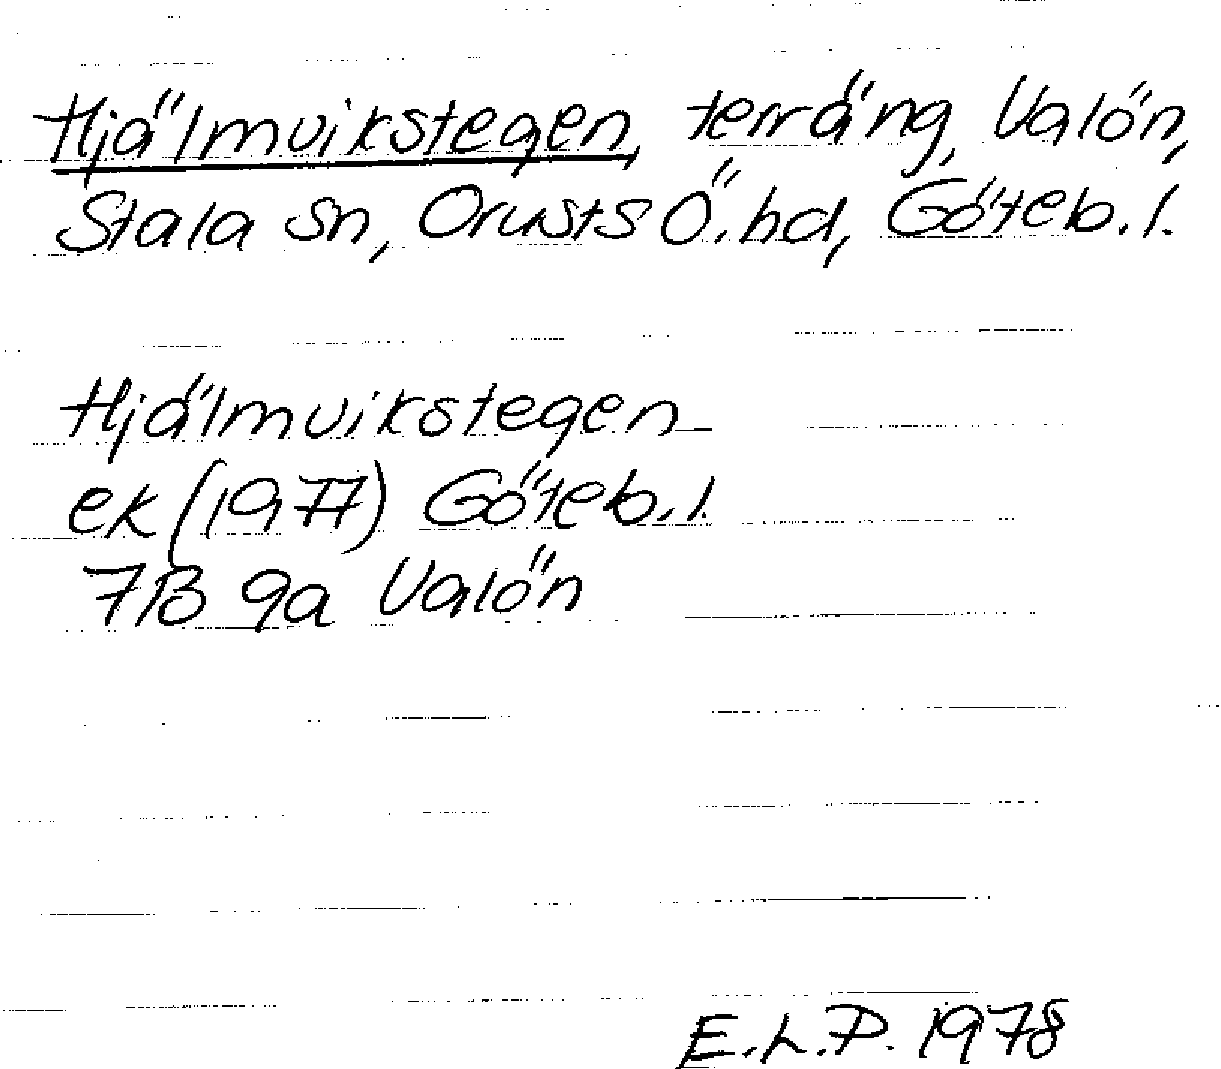 Hjälmvikstegen, terräng, Valön,
Stala sn, Orusts Ö. hd, Göteb. l.
Hjälmvikstegen
ek (1977) Göteb. l.
7B 9a Valön
E.L.P. 1978